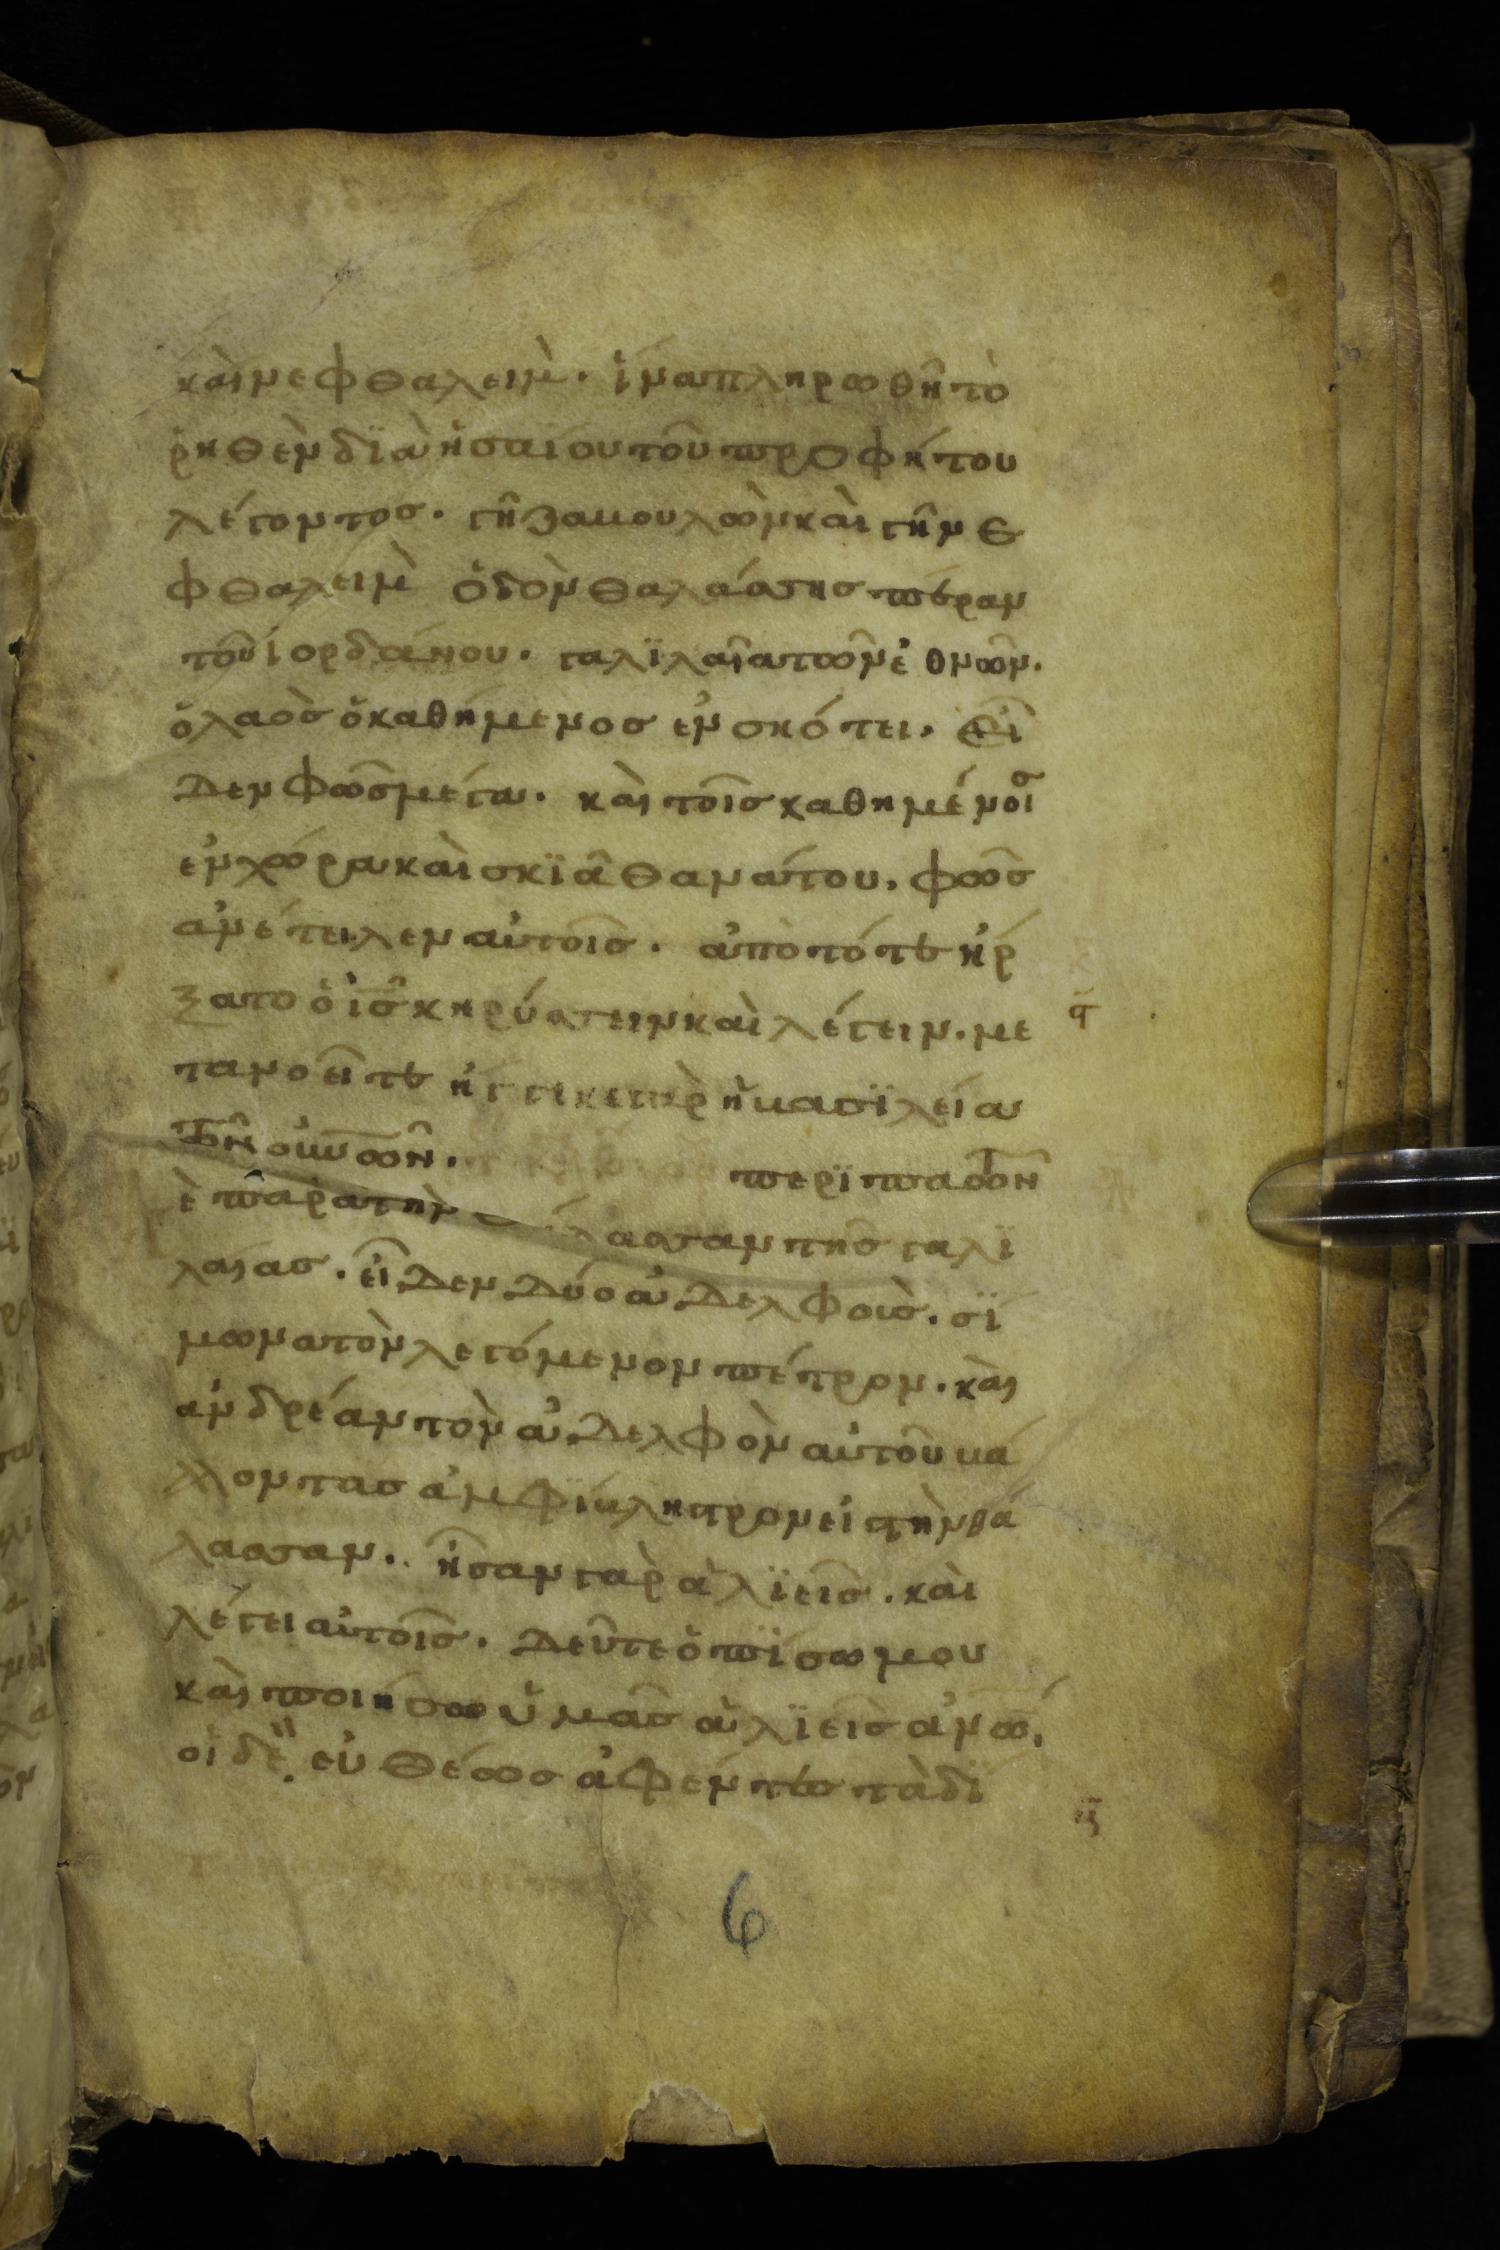 καὶ νεφθαλεὶμ. ἵνα πληρωθῆ τὸ
ῥηθὲν δϊὰ ἡσαΐου τοῦ προφήτου
λέγοντος. γῆ ζαβουλὼν καὶ γῆ νε
φθαλεὶμ ὁδὸν θαλάσσης πέραν
τοῦ ἰορδάνου. γαλϊλαῖα τῶν ἐθνῶν.
ὁ λαὸς ὁ καθήμενος ἐν σκότει. εἶ
δεν φῶς μέγα. καὶ τοῖς καθημένοις
ἐν χώρα καὶ σκϊᾶ θανάτου. φῶς
ἀνέτειλεν αὐτοῖς. ἀπὸ τότε ἤρ
ξατο ὁ ἰς κηρύσσειν καὶ λέγειν. με
τανοεῖτε ἤγγικε γὰρ ἡ βασϊλεία
τῶν οὐνῶν. περϊπατῶν
δὲ παρὰ τὴν θάλασσαν τῆς γαλϊ
λαίας. εἶδεν δύο ἀδελφοὺς. σΐ
μωνα τὸν λεγόμενον πέτρον. καὶ
ἀνδρέαν τὸν ἀδελφὸν αὐτοῦ βά
λλοντας ἀμφΐβληστρον εἰς τὴν θά
λασσαν. ἦσαν γὰρ ἁλϊεῖς. καὶ
λέγει αὐτοῖς. δεῦτε ὀπΐσω μου
καὶ ποιήσω ὑμᾶς ἁλϊεῖς ἀνων.
οἱ δὲ εὐθέως ἀφέντες τὰ δΐ
6